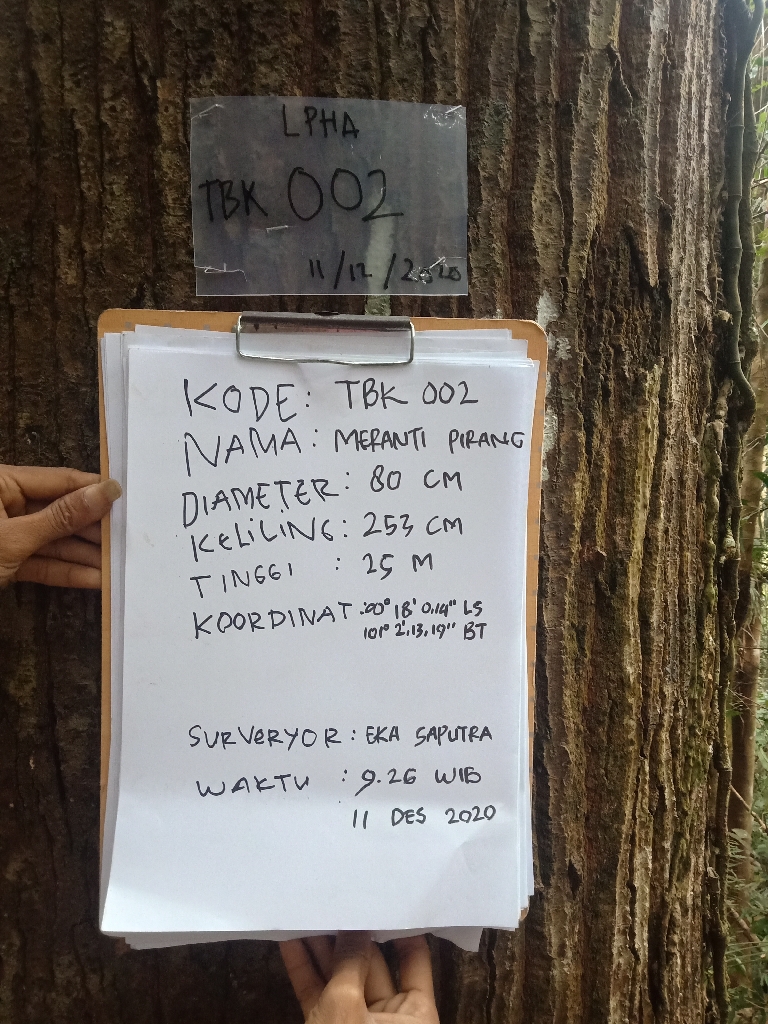 LPHA
TBK 002
11/12/2020
KODE: TBK 002
NAMA: MERANTI PIRANG
DIAMETER: 80 CM
KELILING: 253 CM
TINGGI : 25 M
KOORDINAT :00° 18' 0.14" LS
101° 2', 13, 19" BT
SURVERYOR : EKA SAPUTRA
WAKTU : 9.26 WIB
11 DES 2020